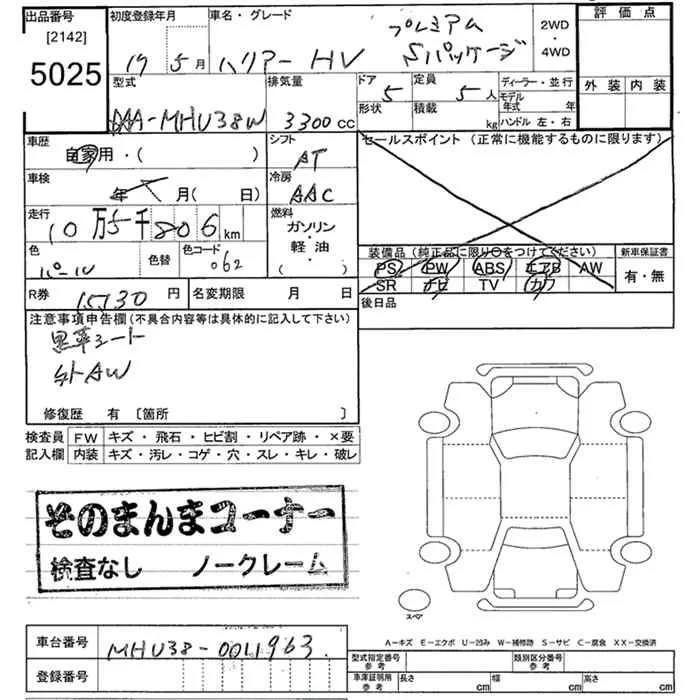 出品番号 初度登録年月 車名・グレード 評価点
[2142]
5025
19 5月 ハリアー HV プレミアム Sパッケージ 2WD ・ 4WD
型式 排気量 ドア 5 定員 5人 ディーラー・並行 外装 内装
DAA-MHU38W 3300cc 形状 積載 kg モデル年式 年
ハンドル 左・右
車歴 シフト セールスポイント (正常に機能するものに限ります)
自家用・( ) AT
車検 冷房
年 月( 日) AAC
走行 燃料
10万5千806km ガソリン・軽・油 ( )
色 色替 色コード 装備品(純正品に限り○をつけてください) 新車保証書
パール 062 PS PW ABS エアB AW 有・無
SR ナビ TV カワ
R券 15130円 名変期限 月 日 後日品
注意事項申告欄(不具合内容等は具体的に記入して下さい)
黒革シート
外AW
修復歴 有 [箇所 ]
検査員 FW キズ・飛石・ヒビ割・リペア跡・×要
記入欄 内装 キズ・汚レ・コゲ・穴・スレ・キレ・破レ
そのまんまコーナー
検査なし ノークレーム
スペア
A-キズ E-エクボ U-凹み W-補修跡 S-サビ C-腐食 XX-交換済
車台番号 MHU38-0011963
型式指定番号 参考 類別区分番号 参考
登録番号
車庫証明用 参考 長さ cm 幅 cm 高さ cm